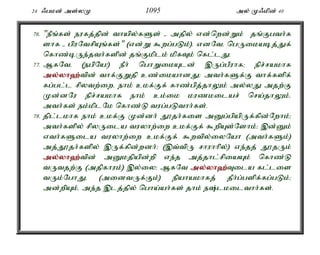 24 ஃபமன் அள்லமு 1095 அல் மூஃமின் 40
76. "நீங்கள் நரகத்தின் வாயில்களுள் - அதில் என்றென்றும் தங்குபவர்க
ளாக - பிரவேசியுங்கள்" (என்று கூறப்படும்). எனவே, பெருமையடித்துக்
கொண்டிருந்தவர்களின் தங்குமிடம் மிகவும் கெட்டது.
77. ஆகவே, (நபியே!) நீர் பொறுமையுடன் இருப்பீராக; நிச்சயமாக
அல்லாஹ்வின் வாக்குறுதி உண்மையானது; அவர்களுக்கு வாக்களிக்
கப்பட்ட சிலவற்றை, நாம் உமக்குக் காண்பித்தாலும் அல்லது அதற்கு
முன்னரே நிச்சயமாக நாம் உம்மை மரணமடையச் செய்தாலும்,
அவர்கள் நம்மிடமே கொண்டு வரப்படுவார்கள்.
78. திட்டமாக நாம் உமக்கு முன்னர் தூதர்களை அனுப்பியிருக்கின்றோம்;
அவர்களில் சிலருடைய வரலாற்றை உமக்குக் கூறியுள்ளோம்; இன்னும்
எவர்களுடைய வரலாற்றை உமக்குக் கூறவில்லையோ (அவர்களும்)
அத்தூதர்களில் இருக்கின்றனர்; (இவ்விரு சாராரில்) எந்தத் தூதரும்
அல்லாஹ்வின் அனுமதியின்றி எந்த அத்தாட்சியையும் கொண்டு
வருவதற்கு (அதிகாரம்) இல்லை; ஆகவே அல்லாஹ்வுடைய கட்டளை
வரும்போது, (அனைவருக்கும்) நியாயமாகத் தீர்ப்பளிக்கப்படும்;
அன்றியும், அந்த இடத்தில் பொய்யர்கள் தாம் நஷ்டமடைவார்கள்.